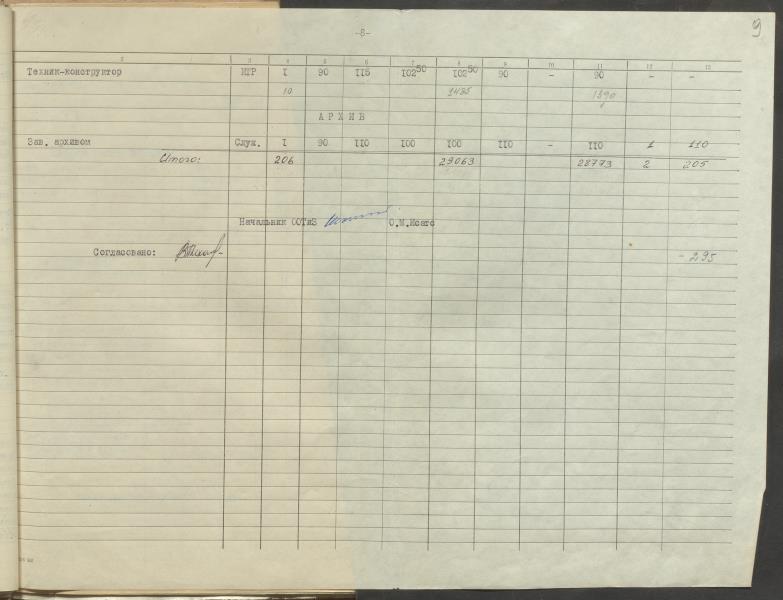 -8-
9
2 3 4 5 6 7 8 9 10 11 12 13
Техник-конструктор ИТР I 90 115 102⁵⁰ 102⁵⁰ 90 - 90 - -
10 1435 1390
АРХИВ
Зав. архивом Служ. I 90 110 100 100 110 - 110 1 110
Итого: 206 29063 28773 2 205
Начальник ООТиЗ О.М.Исаго
Согласовано:
- 295